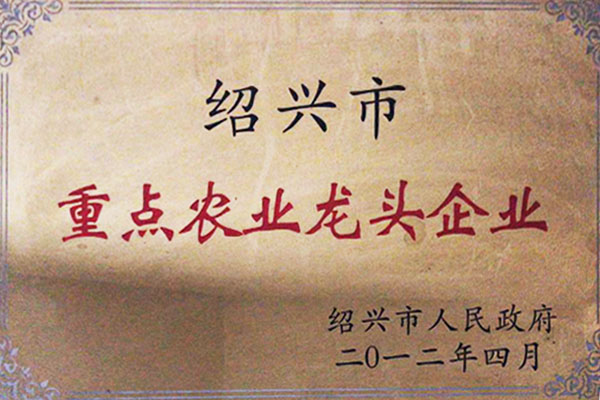 绍兴市
重点农业龙头企业
绍兴市人民政府
二0一二年四月